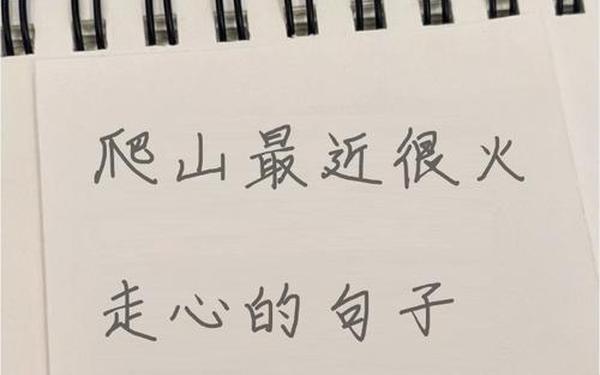 爬山最近很火
走心的句子